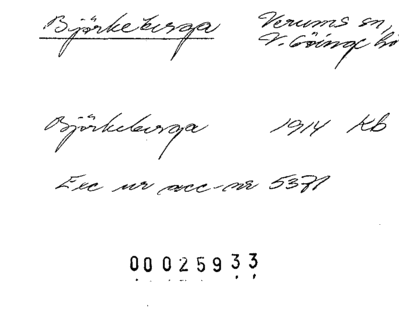 Björkeberga Verums sn,
V. Göinge hd
Björkeberga 1914 Kb
Exc ur acc-nr 5371
00025933